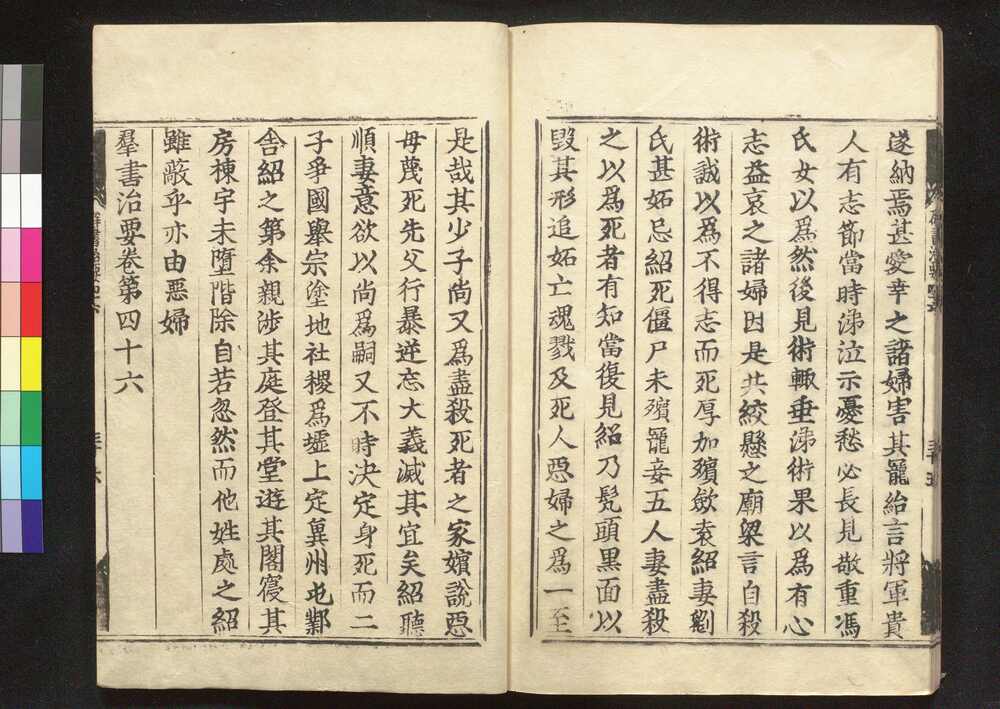 遂納焉甚愛幸之諸婦害其寵紿言將軍貴
人有志節當時涕泣示憂愁必長見敬重馮
氏女以爲然後見術輙垂涕術果以爲有心
志益哀之諸婦因是共絞懸之廟梁言自殺
術誠以爲不得志而死厚加殯歛袁紹妻劉
氏甚妬忌紹死僵尸未殯寵妾五人妻盡殺
之以爲死者有知當復見紹乃髠頭黒面以
毀其形追妬亡魂戮及死人惡婦之爲一至
是哉其少子尚又爲盡殺死者之家嬪說惡
母蔑死先父行暴逆忘大義滅其宜矣紹聽
順妻意欲以尚爲嗣又不時决定身死而二
子爭國舉宗塗地社稷爲墟上定兾州屯鄴
舎紹之第余親涉其庭登其堂遊其閣寑其
房棟宇未墮階除自若忽然而他姓處之紹
雖蔽乎亦由惡婦
羣書治要卷第四十六